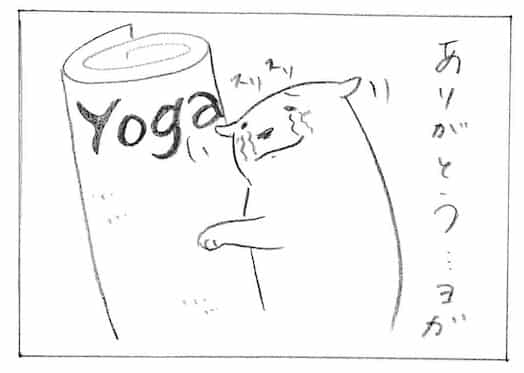 ありがとう…ヨガ
スリスリ
Yoga